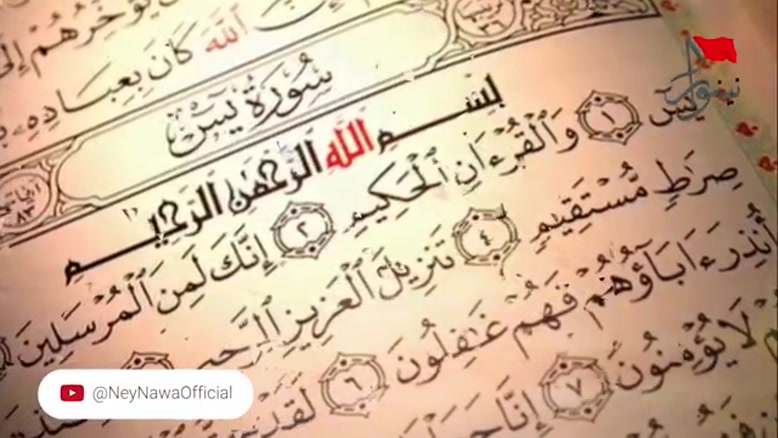 يُؤَخِّرُهُمْ إِلَىٰ
ٱللَّهَ كَانَ بِعِبَادِهِۦ
سُورَةُ يسٓ
بِسْمِ ٱللَّهِ ٱلرَّحْمَٰنِ ٱلرَّحِيمِ
يسٓ ١ وَٱلْقُرْءَانِ ٱلْحَكِيمِ ٢ إِنَّكَ لَمِنَ ٱلْمُرْسَلِينَ
صِرَٰطٍ مُّسْتَقِيمٍ ٤ تَنزِيلَ ٱلْعَزِيزِ ٱلرَّحِيمِ
أُنذِرَ ءَابَآؤُهُمْ فَهُمْ غَٰفِلُونَ ٦ لَقَدْ
لَا يُؤْمِنُونَ ٧ إِنَّا جَعَلْنَا
نینوا
@NeyNawaOfficial